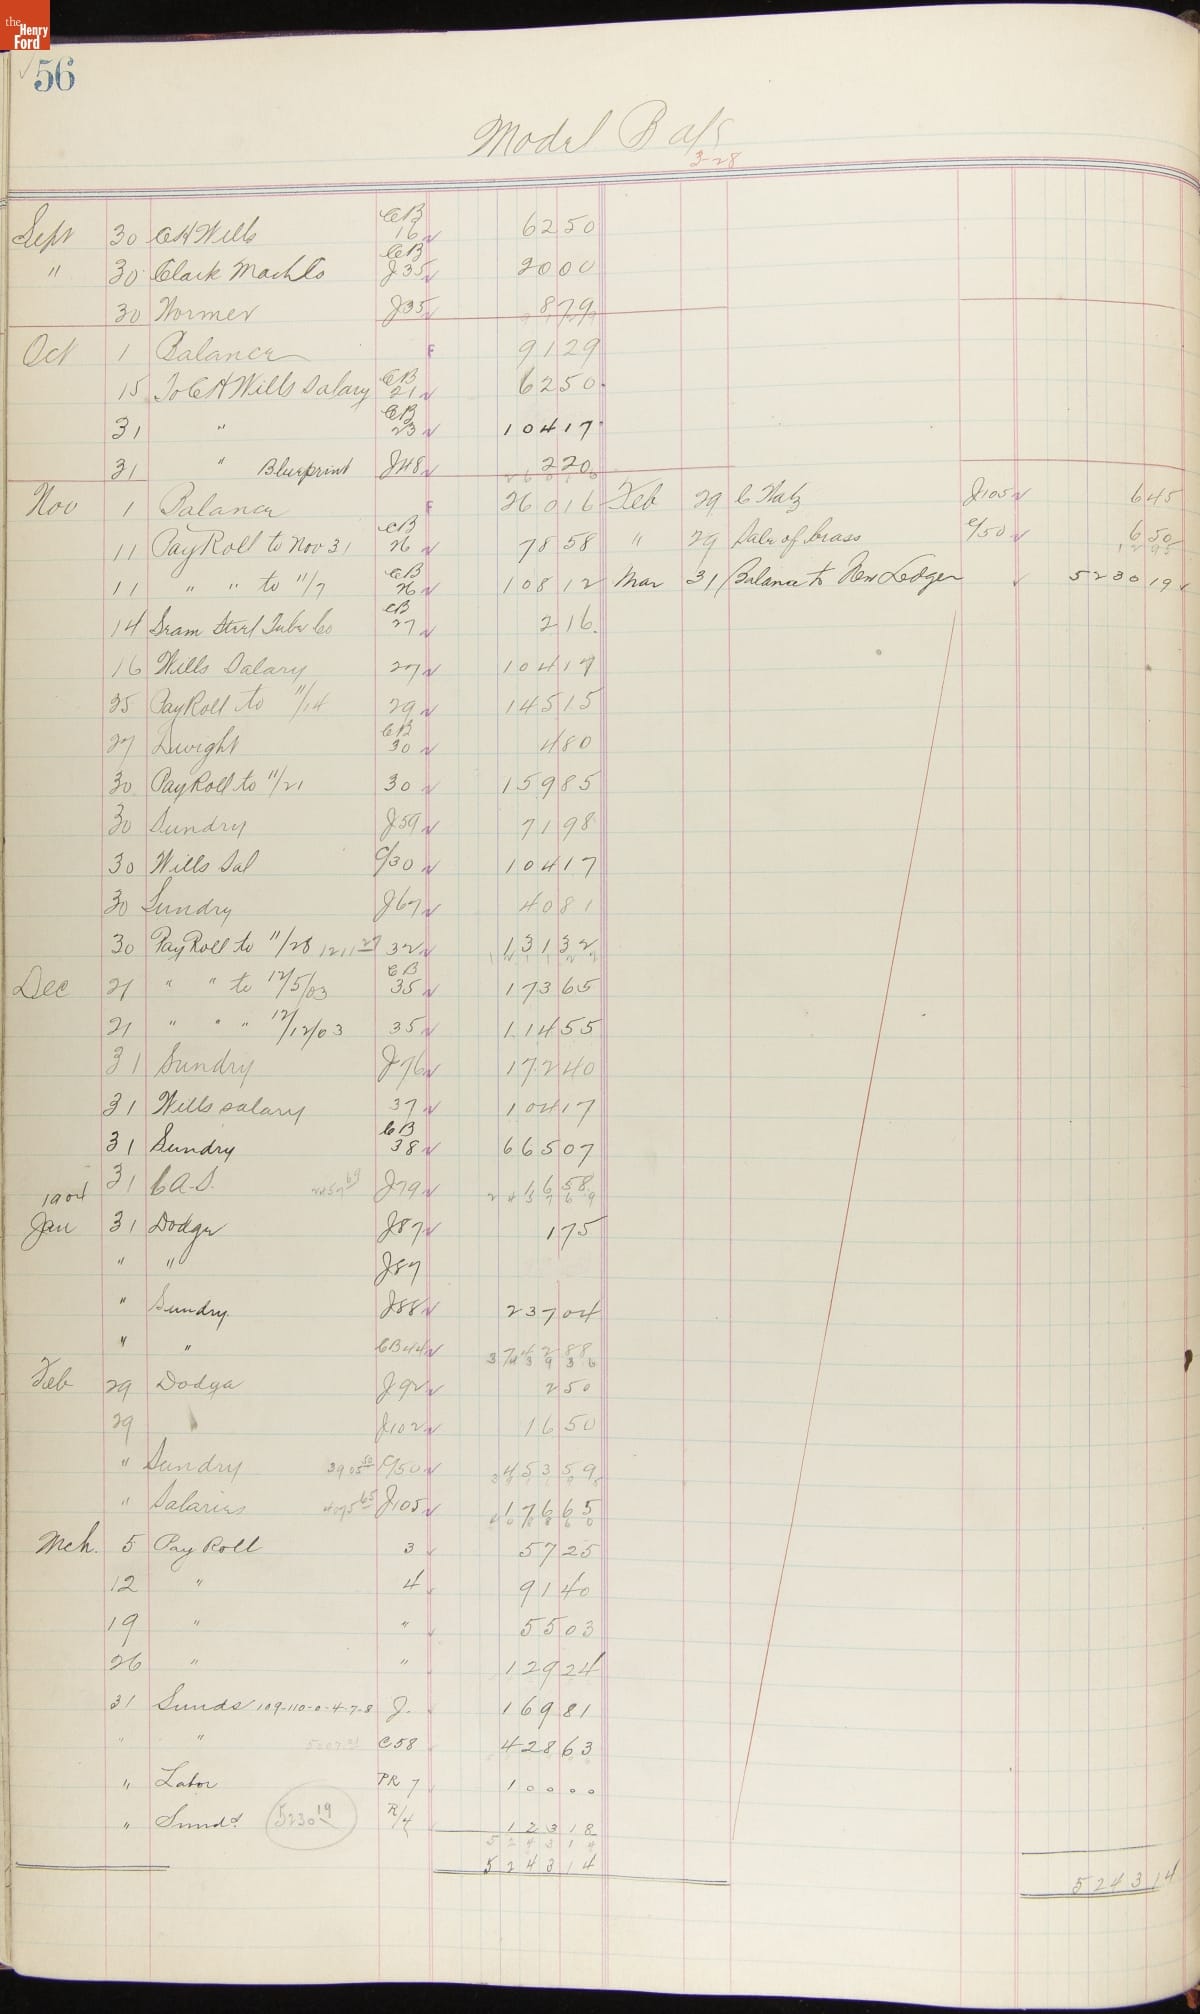 the Henry Ford
56
Model B a/c
3-28
Sept 30 C H Wills CB 16 62 50
" 30 Clark Mach Co CB J35 20 00
30 Wormer J35 8 79
Oct 1 Balance F 91 29
15 To C H Wills Salary CB 21 62 50
31 " CB 23 104 17
31 " Blueprint J48 2 20
Nov 1 Balance F 260 16 Feb 29 J105 6 45
11 Pay Roll to Nov 31 CB 26 78 58 " 29 Sale of brass C/50 6 50
12 95
11 " " to 11/7 CB 26 108 12 Mar 31 Balance to New Ledger 5230 19
14 Seam Steel Tube Co CB 27 2 16
16 Wills Salary 27 104 17
25 Pay Roll to 11/14 29 145 15
27 Dwight CB 30 4 80
30 Pay Roll to 11/21 30 159 85
30 Sundry J59 71 98
30 Wills Sal C/30 104 17
30 Sundry J67 40 81
30 Pay Roll to 11/28 1211 27 32 131 32
Dec 21 " " to 12/5/03 CB 35 173 65
21 " " " 12/12/03 35 114 55
31 Sundry J76 172 40
31 Wills salary 37 104 17
31 Sundry CB 38 665 07
31 C.A.S. 2457 69 J79 16 58
2457 69
1904
Jan 31 Dodge J87 1 75
" " J87
" Sundry J88 237 04
" " CB44 742 88
3439 36
Feb 29 Dodge J92 2 50
29 J102 16 50
" Sundry 3905 C/50 453 59
" Salaries 4075 65 J105 176 65
Mch. 5 Pay Roll 3 57 25
12 " 4 91 40
19 " " 55 03
26 " " 129 24
31 Sunds 109-110-0-4-7-8 J. 169 81
" " C58 428 63
" Labor PR 7 100 00
" Sunds. 5230 19 R/4 123 18
5243 14
5243 14 5243 14